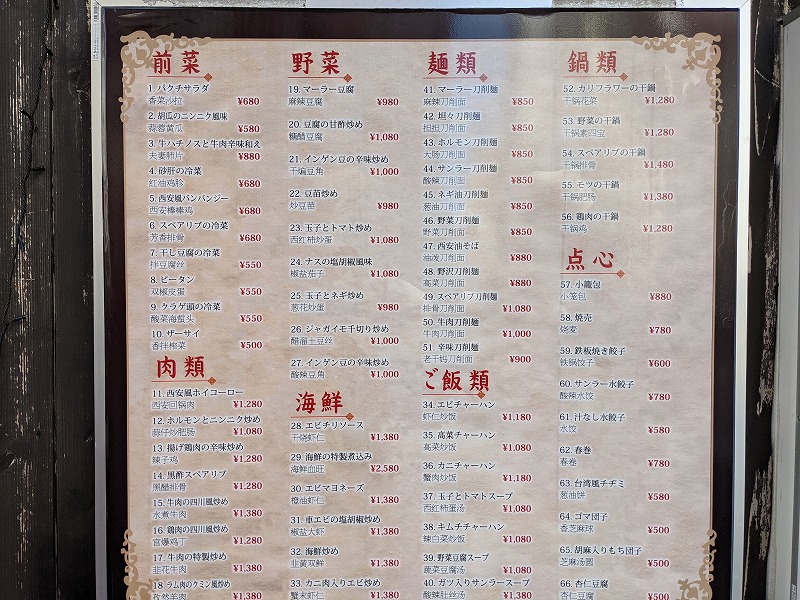 前菜
1. パクチサラダ
香菜沙拉 ¥680
2. 胡瓜のニンニク風味
蒜蓉黄瓜 ¥580
3. 牛ハチノスと牛肉辛味和え
夫妻肺片 ¥880
4. 砂肝の冷菜
红油鸡胗 ¥680
5. 西安風バンバンジー
西安棒棒鸡 ¥680
6. スペアリブの冷菜
芳香排骨 ¥680
7. 干し豆腐の冷菜
拌豆腐丝 ¥550
8. ピータン
双椒皮蛋 ¥550
9. クラゲ頭の冷菜
酸菜海蜇头 ¥550
10. ザーサイ
香拌榨菜 ¥500
肉類
11. 西安風ホイコーロー
西安回锅肉 ¥1,280
12. ホルモンとニンニク炒め
蒜仔炒肥肠 ¥1,080
13. 揚げ鶏肉の辛味炒め
辣子鸡 ¥1,280
14. 黒酢スペアリブ
黑醋排骨 ¥1,280
15. 牛肉の四川風炒め
水煮牛肉 ¥1,380
16. 鶏肉の四川風炒め
宫爆鸡丁 ¥1,280
17. 牛肉の特製炒め
韭花牛肉 ¥1,380
18. ラム肉のクミン風炒め
孜然羊肉 ¥1,380
野菜
19. マーラー豆腐
麻辣豆腐 ¥980
20. 豆腐の甘酢炒め
糖醋豆腐 ¥1,080
21. インゲン豆の辛味炒め
干煸豆角 ¥1,000
22. 豆苗炒め
炒豆苗 ¥980
23. 玉子とトマト炒め
西红柿炒蛋 ¥1,080
24. ナスの塩胡椒風味
椒盐茄子 ¥1,080
25. 玉子とネギ炒め
葱花炒蛋 ¥980
26. ジャガイモ千切り炒め
醋溜土豆丝 ¥1,000
27. インゲン豆の辛味炒め
酸辣豆角 ¥1,000
海鮮
28. エビチリソース
干烧虾仁 ¥1,380
29. 海鮮の特製煮込み
海鲜血旺 ¥2,580
30. エビマヨネーズ
橙油虾仁 ¥1,380
31. 車エビの塩胡椒炒め
椒盐大虾 ¥1,380
32. 海鮮炒め
韭黄双鲜 ¥1,380
33. カニ肉入りエビ炒め
蟹末虾仁 ¥1,380
麺類
41. マーラー刀削麺
麻辣刀削面 ¥850
42. 坦々刀削麺
担担刀削面 ¥850
43. ホルモン刀削麺
大肠刀削面 ¥850
44. サンラー刀削麺
酸辣刀削面 ¥850
45. ネギ油刀削麺
葱油刀削面 ¥850
46. 野菜刀削麺
野菜刀削面 ¥850
47. 西安油そば
油泼刀削面 ¥880
48. 野沢刀削麺
高菜刀削面 ¥880
49. スペアリブ刀削麺
排骨刀削面 ¥1,080
50. 牛肉刀削麺
牛肉刀削面 ¥1,000
51. 辛味刀削麺
老干妈刀削面 ¥900
ご飯類
34. エビチャーハン
虾仁炒饭 ¥1,180
35. 高菜チャーハン
高菜炒饭 ¥1,080
36. カニチャーハン
蟹肉炒饭 ¥1,180
37. 玉子とトマトスープ
西红柿蛋汤 ¥1,080
38. キムチチャーハン
辣白菜炒饭 ¥1,080
39. 野菜豆腐スープ
蔬菜豆腐汤 ¥1,080
40. ガツ入りサンラースープ
酸辣肚丝汤 ¥1,080
鍋類
52. カリフラワーの干鍋
干锅花菜 ¥1,280
53. 野菜の干鍋
干锅素四宝 ¥1,280
54. スペアリブの干鍋
干锅排骨 ¥1,480
55. モツの干鍋
干锅肥肠 ¥1,380
56. 鶏肉の干鍋
干锅鸡 ¥1,280
点心
57. 小籠包
小笼包 ¥880
58. 焼売
烧麦 ¥780
59. 鉄板焼き餃子
铁锅饺子 ¥600
60. サンラー水餃子
酸辣水饺 ¥780
61. 汁なし水餃子
水饺 ¥580
62. 春巻
春卷 ¥780
63. 台湾風チヂミ
葱油饼 ¥580
64. ゴマ団子
香芝麻球 ¥500
65. 胡麻入りもち団子
芝麻汤圆 ¥500
66. 杏仁豆腐
杏仁豆腐 ¥500